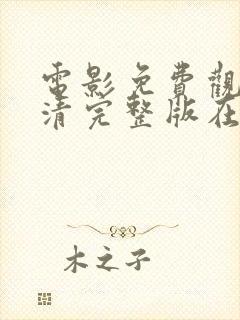 電影免費觀
清完整版在
木之子